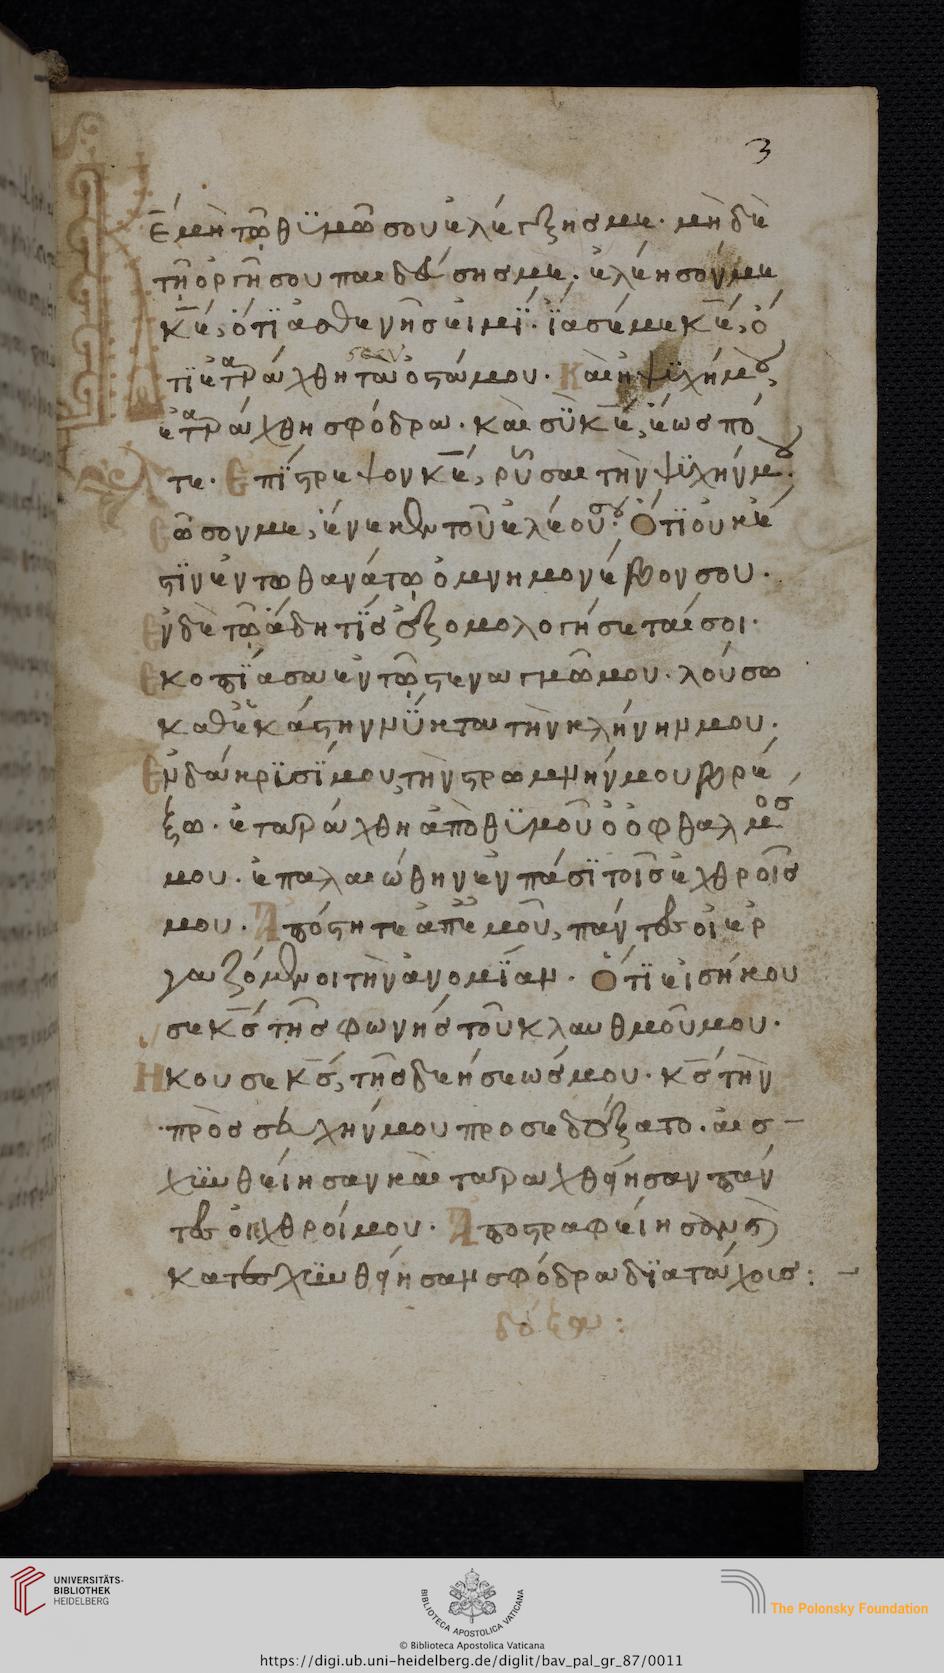 3
Κ̅ε̅ μὴ τῷ θϋμῶ σου ἐλέγξησ με· μὴ δὲ
τῆ ὀργῆ σου παιδεύσησ με· ἐλέησόν με
κ̅ε̅, ὅτϊ ἀσθενήσ εἰμϊ· ἴασέ με κ̅ε̅, ὅ
τϊ ἐταράχθη τὰ ὀστά μου· Καὶ ἡ ψϋχή μου,
ἐταράχθη σφόδρα· καὶ σὺ κ̅ε̅, ἕωσ πό
τε· Επίστρεψον κ̅ε̅, ρῦσαι τὴν ψϋχήν μου·
σῶσον με, ἕνεκεν τοῦ ἐλέου σου· Ότϊ οὐκ ἔ
στϊν ἐν τῶ θανάτω ὁ μνημονεύων σου·
Εν δὲ τῷ ἅδη τίσ ἐξομολογήσεταί σοι·
Εκοπΐασα ἐν τῷ στεναγμῶ μου· λούσω
καθεκάστην νύκτα τὴν κλήνην μου·
Εν δάκρϊσΐ μου, τὴν στρωμνήν μου βρέ
ξω· ἐταράχθη ἀπὸ θϋμοῦ ὁ ὀφθαλμόσ
μου· ἐπαλαιώθην ἐν πάσϊ τοῖσ ἐχθροῖσ
μου· Απόστητε ἀπ' ἐμοῦ, πάντεσ οἱ ἐρ
γαζόμενοι τὴν ἀνομΐαν· Ότϊ εἰσήκου
σε κ̅σ̅ τῆσ φωνήσ τοῦ κλαυθμοῦ μου·
Ηκουσε κ̅σ̅, τῆσ δεήσεώσ μου· κ̅σ̅ τὴν
προσευχήν μου προσεδέξατο· αἰσ-
χϋνθείησαν καὶ ταραχθείησαν πάν
τεσ οἱ ἐχθροί μου· Αποστραφείησαν
καταισχϋνθείησαν σφόδρα δϊα τάχουσ:
δόξα:
UNIVERSITÄTS-
BIBLIOTHEK
HEIDELBERG
BIBLIOTECA APOSTOLICA VATICANA
The Polonsky Foundation
© Biblioteca Apostolica Vaticana
https://digi.ub.uni-heidelberg.de/diglit/bav_pal_gr_87/0011